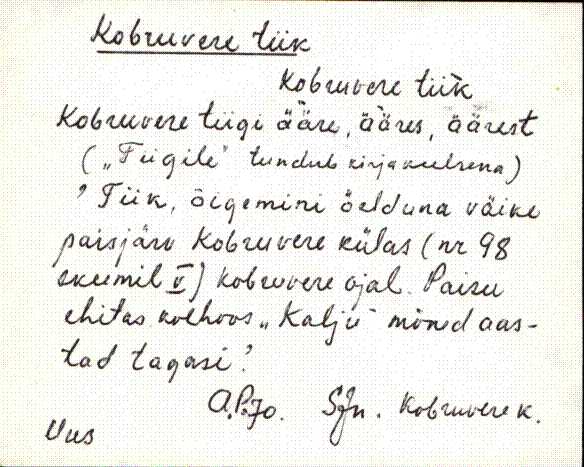 Kobruvere tiik
Kobruvere tiik
Kobruvere tiigi ääre, ääres, äärest
("Tiigile" tundub kirjakeelsena)
' Tiik, õigemini öelduna väike
paisjärv Kobruvere külas (nr 98
skeemil V) Kobruvere ojal. Paisu
ehitas kolhoos „Kalju" mõned aas-
tad tagasi.'
A.P. 70. Sjn. Kobruvere k.
Uus